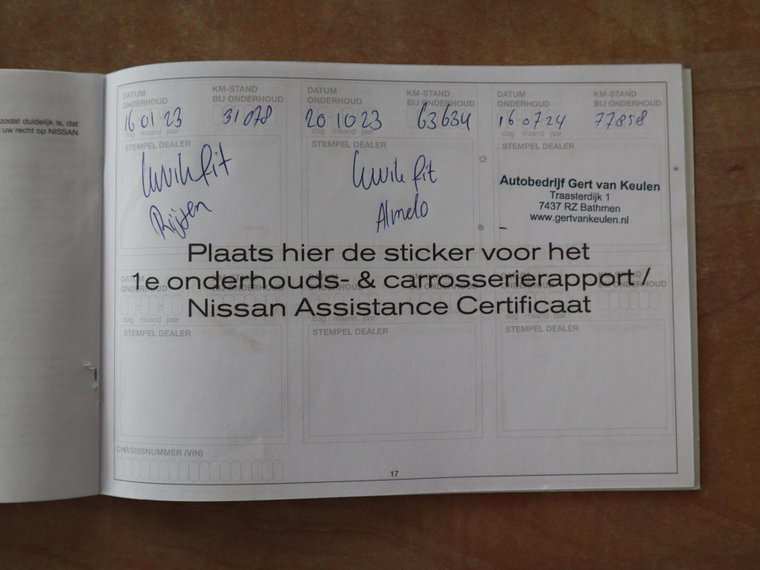 zodat duidelijk is, dat
uw recht op NISSAN
DATUM
ONDERHOUD
KM-STAND
BIJ ONDERHOUD
16 01 23
31078
dag maand jaar
STEMPEL DEALER
Kwik fit
Rijssen
DATUM
ONDERHOUD
KM-STAND
BIJ ONDERHOUD
20 10 23
63634
dag maand jaar
STEMPEL DEALER
Kwik fit
Almelo
DATUM
ONDERHOUD
KM-STAND
BIJ ONDERHOUD
16 07 24
77858
dag maand jaar
STEMPEL DEALER
Autobedrijf Gert van Keulen
Traasterdijk 1
7437 RZ Bathmen
www.gertvankeulen.nl
Plaats hier de sticker voor het
1e onderhouds- & carrosserierapport /
Nissan Assistance Certificaat
DATUM
ONDERHOUD
dag maand jaar
STEMPEL DEALER
dag maand jaar
STEMPEL DEALER
dag maand jaar
STEMPEL DEALER
CHASSISNUMMER (VIN)
17